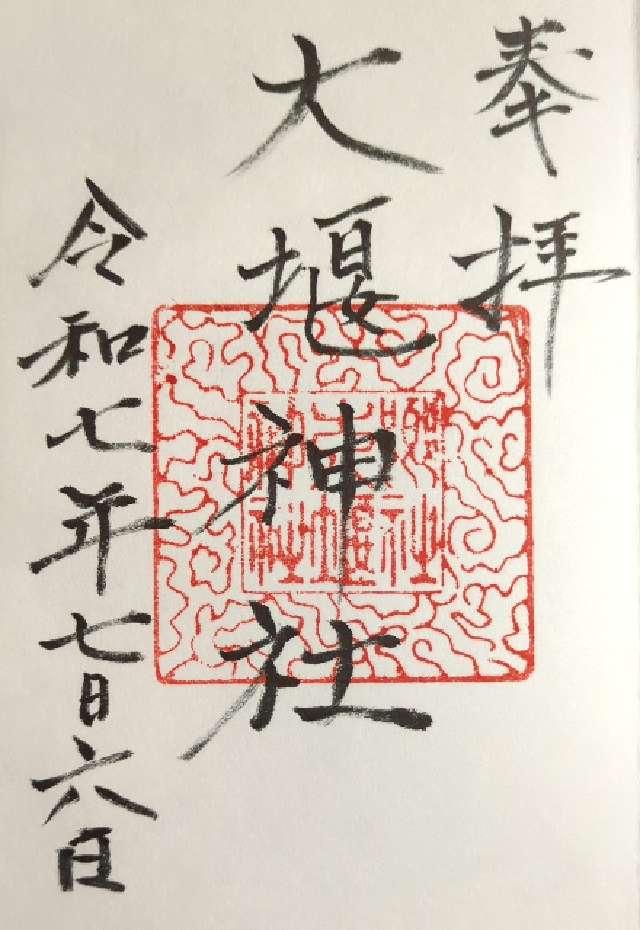 奉拝
大堰神社
令和七年七月六日